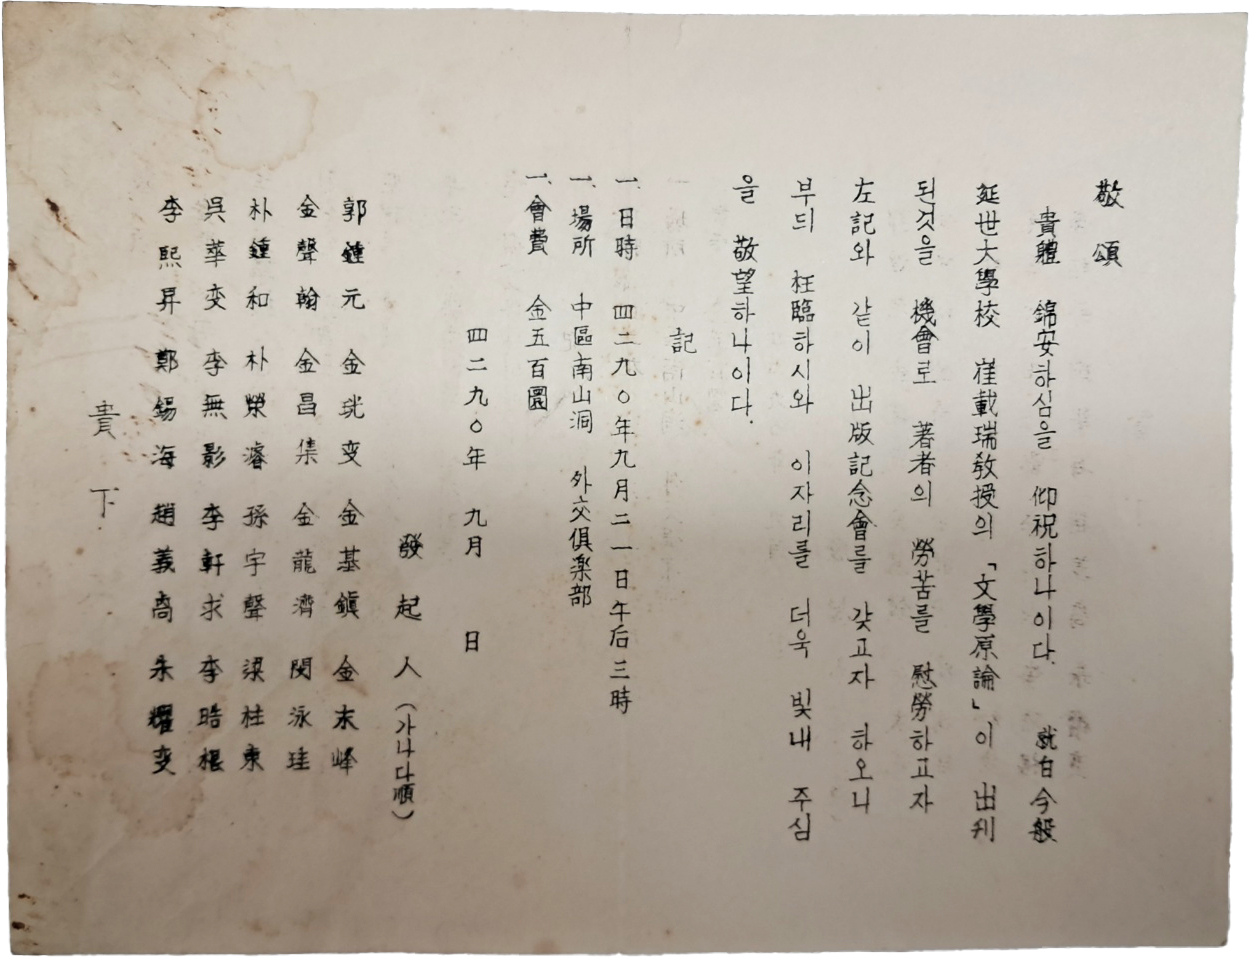 敬頌
貴體 錦安하심을 仰祝하나이다. 就白今般
延世大學校 崔載瑞敎授의 「文學原論」이 出刋
된것을 機會로 著者의 勞苦를 慰勞하고자
左記와 같이 出版記念會를 갖고자 하오니
부듸 枉臨하시와 이자리를 더욱 빛내 주심
을 敬望하나이다.
記
一. 日時 四二九〇年九月二一日午后三時
一. 場所 中區南山洞 外交俱楽部
一. 會費 金五百圜
四二九〇年 九月 日
發起人 (가나다順)
郭鍾元 金珖燮 金基鎭 金末峰
金聲翰 金昌集 金龍濟 閔泳珪
朴鍾和 朴榮濬 孫宇聲 梁柱東
吳華燮 李無影 李軒求 李晧根
李熙昇 鄭錫海 趙義卨 永耀燮
貴下